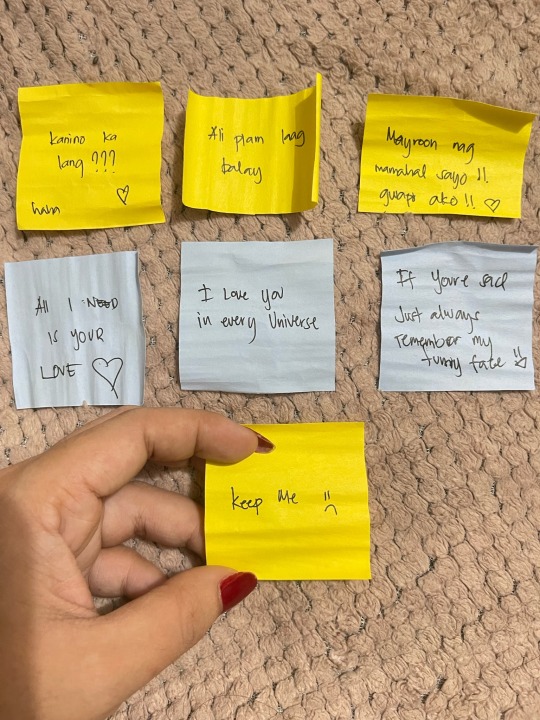 Kanino ka
lang ???
haha
Ali plam laag
balay
Mayroon nag
mamahal sayo !!
guapo ako !!
All I NEED
IS YOUR
LOVE
I Love you
in every Universe
If youre sad
Just always
remember my
funny fate
Keep Me